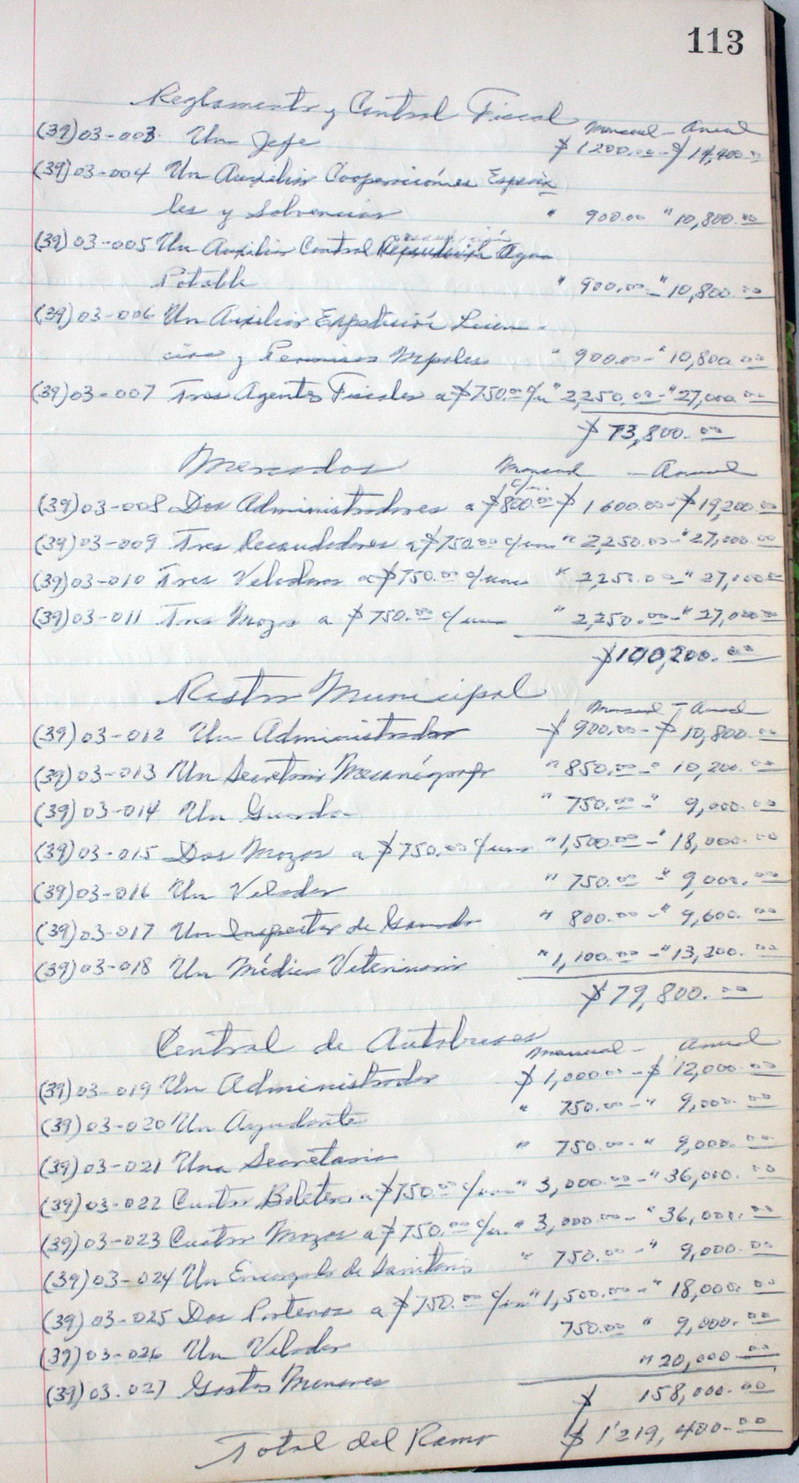 113
Reglamentos y Control Fiscal
Mensual - Anual
(39)03-003. Un Jefe $ 1200.00 - $ 14,400.00
(39)03-004 Un Auxilio Cooperaciones Especia
les y Solvencias " 900.00 " 10,800.00
(39)03-005 Un Auxiliar Control Agua
Potable " 900.00 - " 10,800.00
(39)03-006 Un Auxiliar Expedición Licen-
cias y Permisos Mpales " 900.00 - " 10,800.00
(39)03-007 Tres Agentes Fiscales a $750.00 c/u " 2,250.00 - " 27,000.00
$ 73,800.00
Mercados Mensual - Anual
(39)03-008 Dos Administradores a $800.00 c/u. $ 1600.00 - $ 19,200.00
(39)03-009 Tres Recaudadores a $750.00 c/uno " 2,250.00 - " 27,000.00
(39)03-010 Tres Veladores a $750.00 c/uno " 2,250.00 " 27,000.00
(39)03-011 Tres Mozos a $750.00 c/uno " 2,250.00 - " 27,000.00
$100,200.00
Rastro Municipal
Mensual - Anual
(39)03-012 Un Administrador $ 900.00 - $ 10,800.00
(39)03-013 Un Secretario Mecanógrafo " 850.00 - " 10,200.00
(39)03-014 Un Guarda " 750.00 - " 9,000.00
(39)03-015 Dos Mozos a $750.00 c/uno " 1,500.00 - " 18,000.00
(39)03-016 Un Velador " 750.00 - " 9,000.00
(39)03-017 Un Inspector de Ganado " 800.00 - " 9,600.00
(39)03-018 Un Médico Veterinario " 1,100.00 - " 13,200.00
$ 79,800.00
Central de Autobuses
Mensual - Anual
(39)03-019 Un Administrador $ 1,000.00 - $ 12,000.00
(39)03-020 Un Ayudante " 750.00 - " 9,000.00
(39)03-021 Una Secretaria " 750.00 - " 9,000.00
(39)03-022 Cuatro Boleteros a $750.00 c/uno " 3,000.00 - " 36,000.00
(39)03-023 Cuatro Mozos a $750.00 c/u. " 3,000.00 - " 36,000.00
(39)03-024 Un Encargado de Sanitario " 750.00 - " 9,000.00
(39)03-025 Dos Porteros a $750.00 c/uno " 1,500.00 - " 18,000.00
(39)03-026 Un Velador 750.00 " 9,000.00
(39)03-027 Gastos Menores " 20,000.00
$ 158,000.00
Total del Ramo $ 1'219,400.00